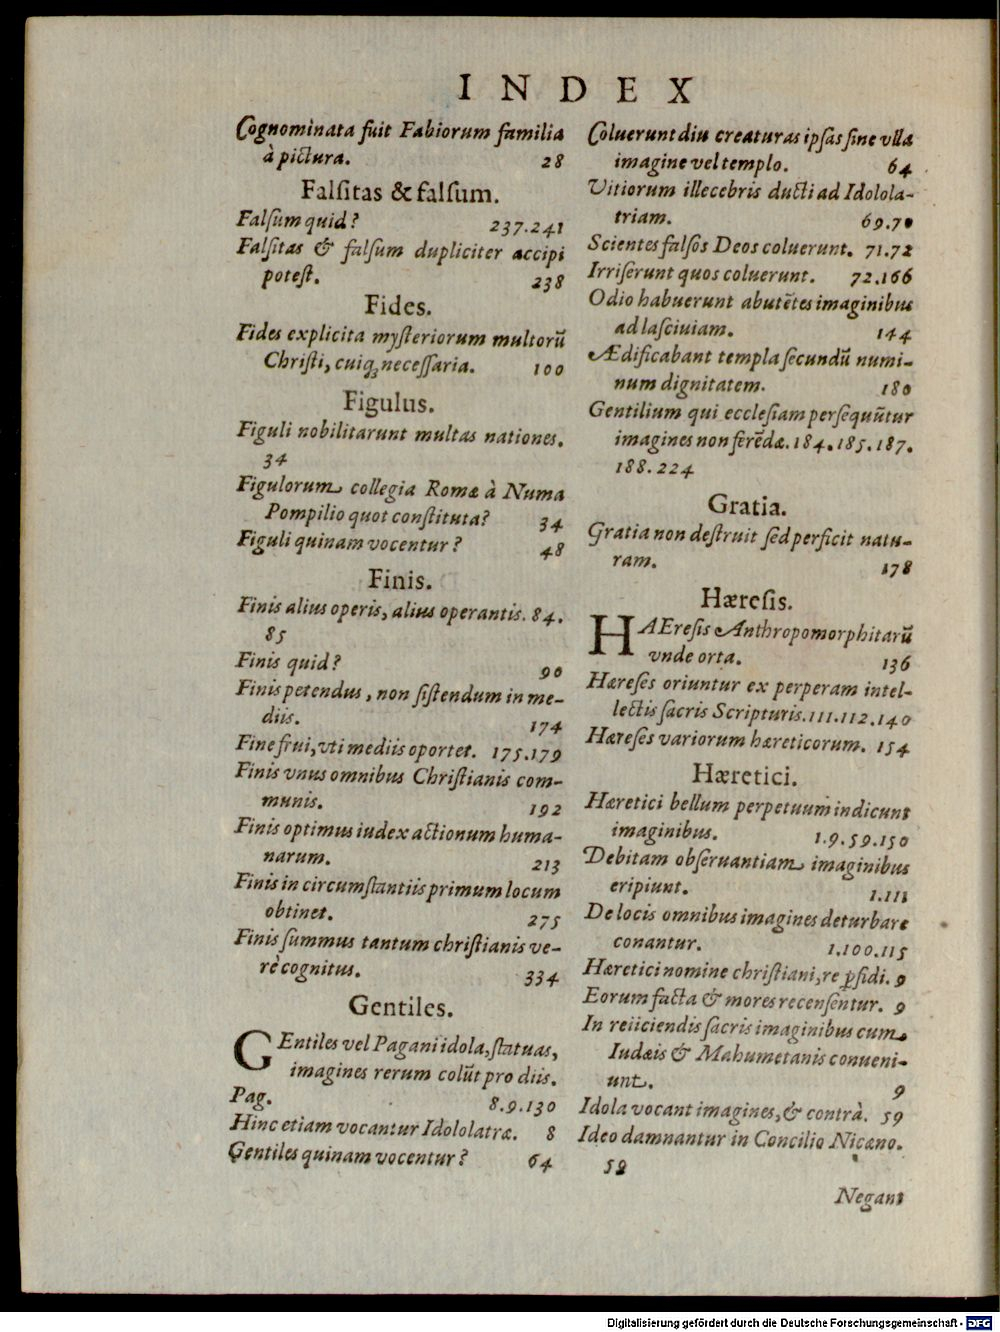 INDEX
Cognominata fuit Fabiorum familia
à pictura. 28
Falſitas & falſum.
Falſum quid? 237.241
Falſitas & falſum dupliciter accipi
poteſt. 238
Fides.
Fides explicita myſteriorum multorũ
Chriſti, cuiq; neceſſaria. 100
Figulus.
Figuli nobilitarunt multas nationes.
34
Figulorum collegia Romæ à Numa
Pompilio quot conſtituta? 34
Figuli quinam vocentur? 48
Finis.
Finis alius operis, alius operantis. 84.
85
Finis quid? 90
Finis petendus, non ſiſtendum in me-
diis. 174
Fine frui, vti mediis oportet. 175.179
Finis vnus omnibus Chriſtianis com-
munis. 192
Finis optimus iudex actionum huma-
narum. 213
Finis in circumſtantiis primum locum
obtinet. 275
Finis ſummus tantum chriſtianis ve-
rè cognitus. 334
Gentiles.
GEntiles vel Pagani idola, ſtatuas,
imagines rerum colũt pro diis.
Pag. 8.9.130
Hinc etiam vocantur Idololatræ. 8
Gentiles quinam vocentur? 64
Coluerunt diu creaturas ipſas ſine vlla
imagine vel templo. 64
Vitiorum illecebris ducti ad Idolola-
triam. 69.70
Scientes falſos Deos coluerunt. 71.72
Irriſerunt quos coluerunt. 72.166
Odio habuerunt abutẽtes imaginibus
ad laſciuiam. 144
Ædificabant templa ſecundũ numi-
num dignitatem. 180
Gentilium qui eccleſiam perſequũtur
imagines non ferẽdæ. 184.185.187.
188.224
Gratia.
Gratia non deſtruit ſed perficit natu-
ram. 178
Hæreſis.
HAEreſis Anthropomorphitarũ
vnde orta. 136
Hæreſes oriuntur ex perperam intel-
lectis ſacris Scripturis. 111.112.140
Hæreſes variorum hæreticorum. 154
Hæretici.
Hæretici bellum perpetuum indicunt
imaginibus. 1.9.59.150
Debitam obſeruantiam imaginibus
eripiunt. 1.111
De locis omnibus imagines deturbare
conantur. 1.100.115
Hæretici nomine chriſtiani, re ꝑfidi. 9
Eorum facta & mores recenſentur. 9
In reiiciendis ſacris imaginibus cum
Iudæis & Mahumetanis conueni-
unt. 9
Idola vocant imagines, & contrà. 59
Ideo damnantur in Concilio Nicæno.
59
Negant
Digitalisierung gefördert durch die Deutsche Forschungsgemeinschaft - DFG